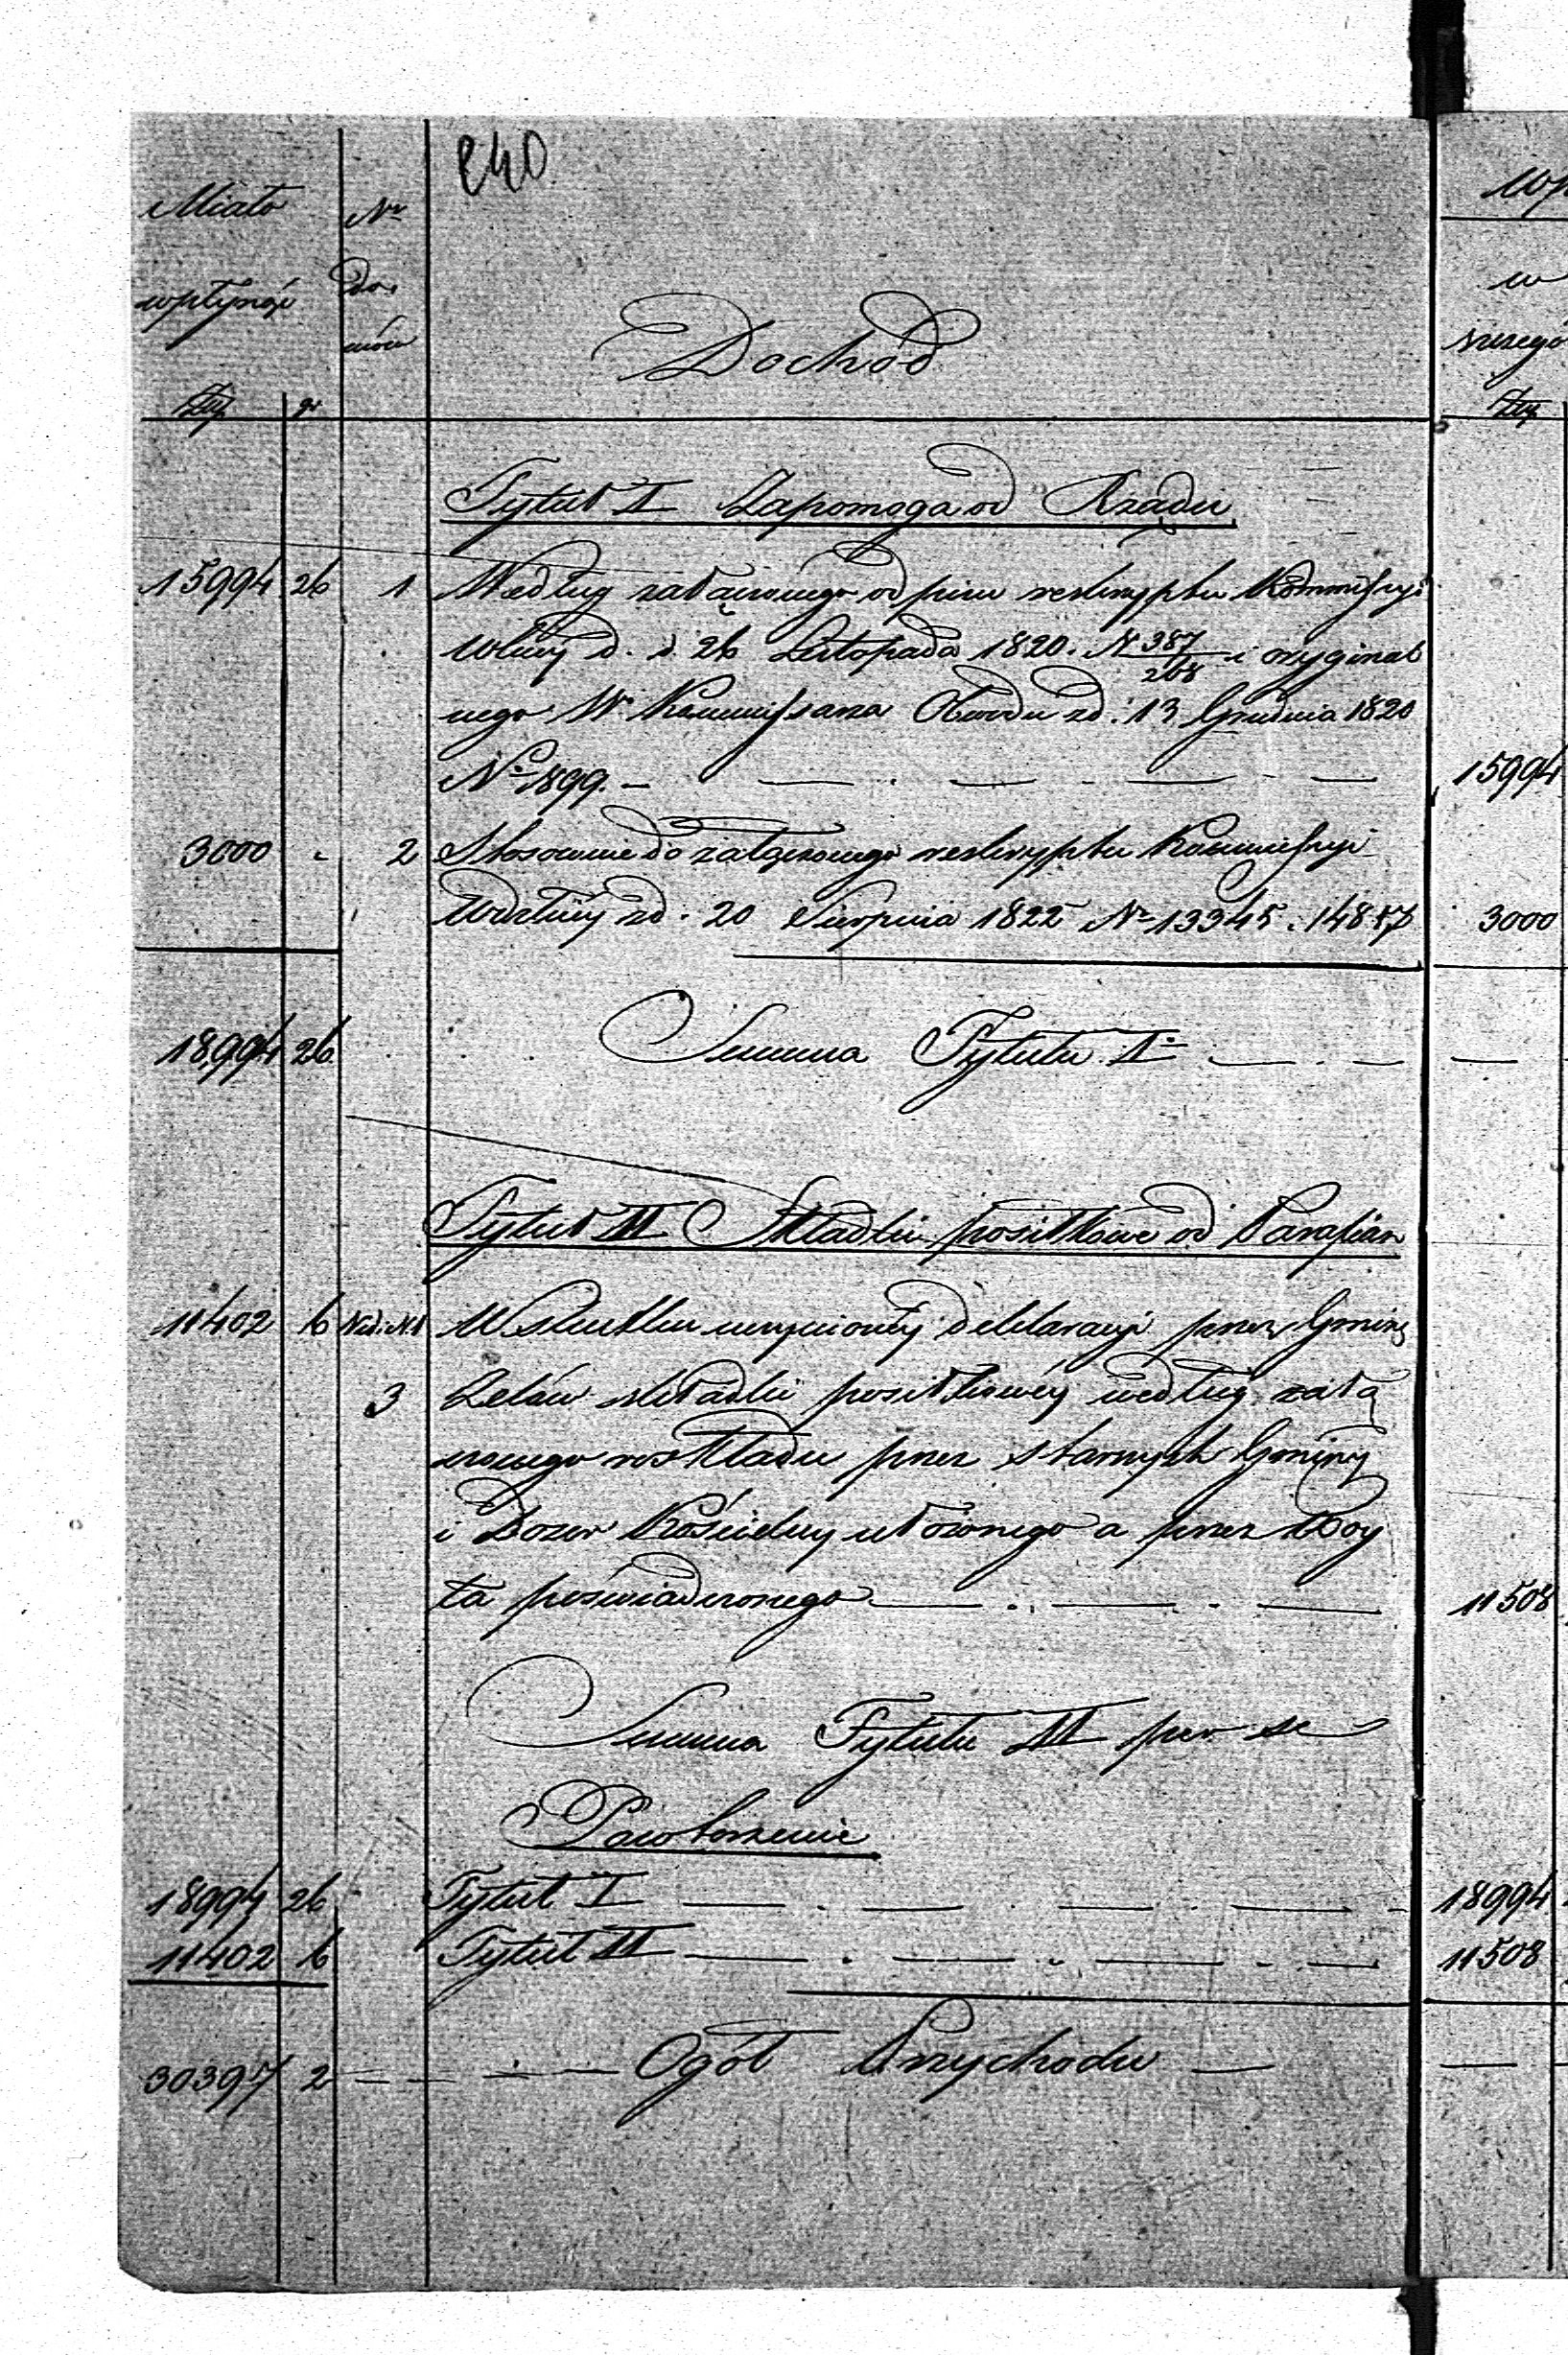 240
Miało Nr Wp
wpłynąć do= w
wodu
Dochód
naszego
Złp gr Złp
Tytuł I Zapomoga od Rządu
15994 26 1 Według załączonego odpisu reskryptu Kommissyi
Wktwy d. d. 26 Listopada 1820. N 387/268 i oryginal
nego W. Kommissarza Obwodu z d: 13 Grudnia 1820
No 1899. — 15994
3000 - 2 Stosownie do załączonego reskryptu Kommissyi
Wdztwy z d. 20 Sierpnia 1822 Nr 13345. 14857 3000
18,994 26 Summa Tytułu I.
Tytuł II Składki posiłkowe od Parafian
11402 6 W skutku uczynionéj deklaracyi przez Gminę
3 Zelów składki posiłkowéj według załą
czonego rozkładu przez starszych Gminy
i Dozor Kościelny ułożonego a przez Woy
ta poświadczonego 11508
Summa Tytułu II per se
Powtorzenie
18994 26 Tytuł I 18994
11402 6 Tytuł II 11508
30397 2 Ogół Przychodu